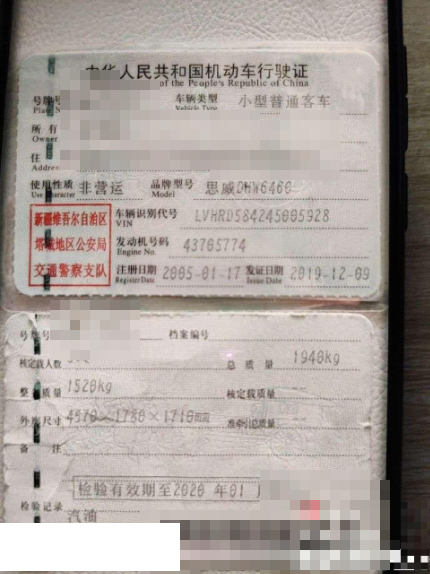 中华人民共和国机动车行驶证
of the People's Republic of China
号牌号 车辆类型 小型普通客车
Vehicle Type
所有
Owner
住
Address
使用性质 非营运 品牌型号 思威DHW6460
Use Character Model
新疆维吾尔自治区 车辆识别代号 LVHRD584245005928
VIN
塔城地区公安局 发动机号码 43705774
Engine No.
交通警察支队 注册日期 2005-01-17 发证日期 2019-12-09
Register Date Issue Date
号牌号 档案编号
核定载人数 总质量 1940kg
整 质量 1520kg 核定载质量
外廓尺寸 4570×1780×1710mm 准牵引总质量
备注
检验有效期至2020年01
检验记录
汽油